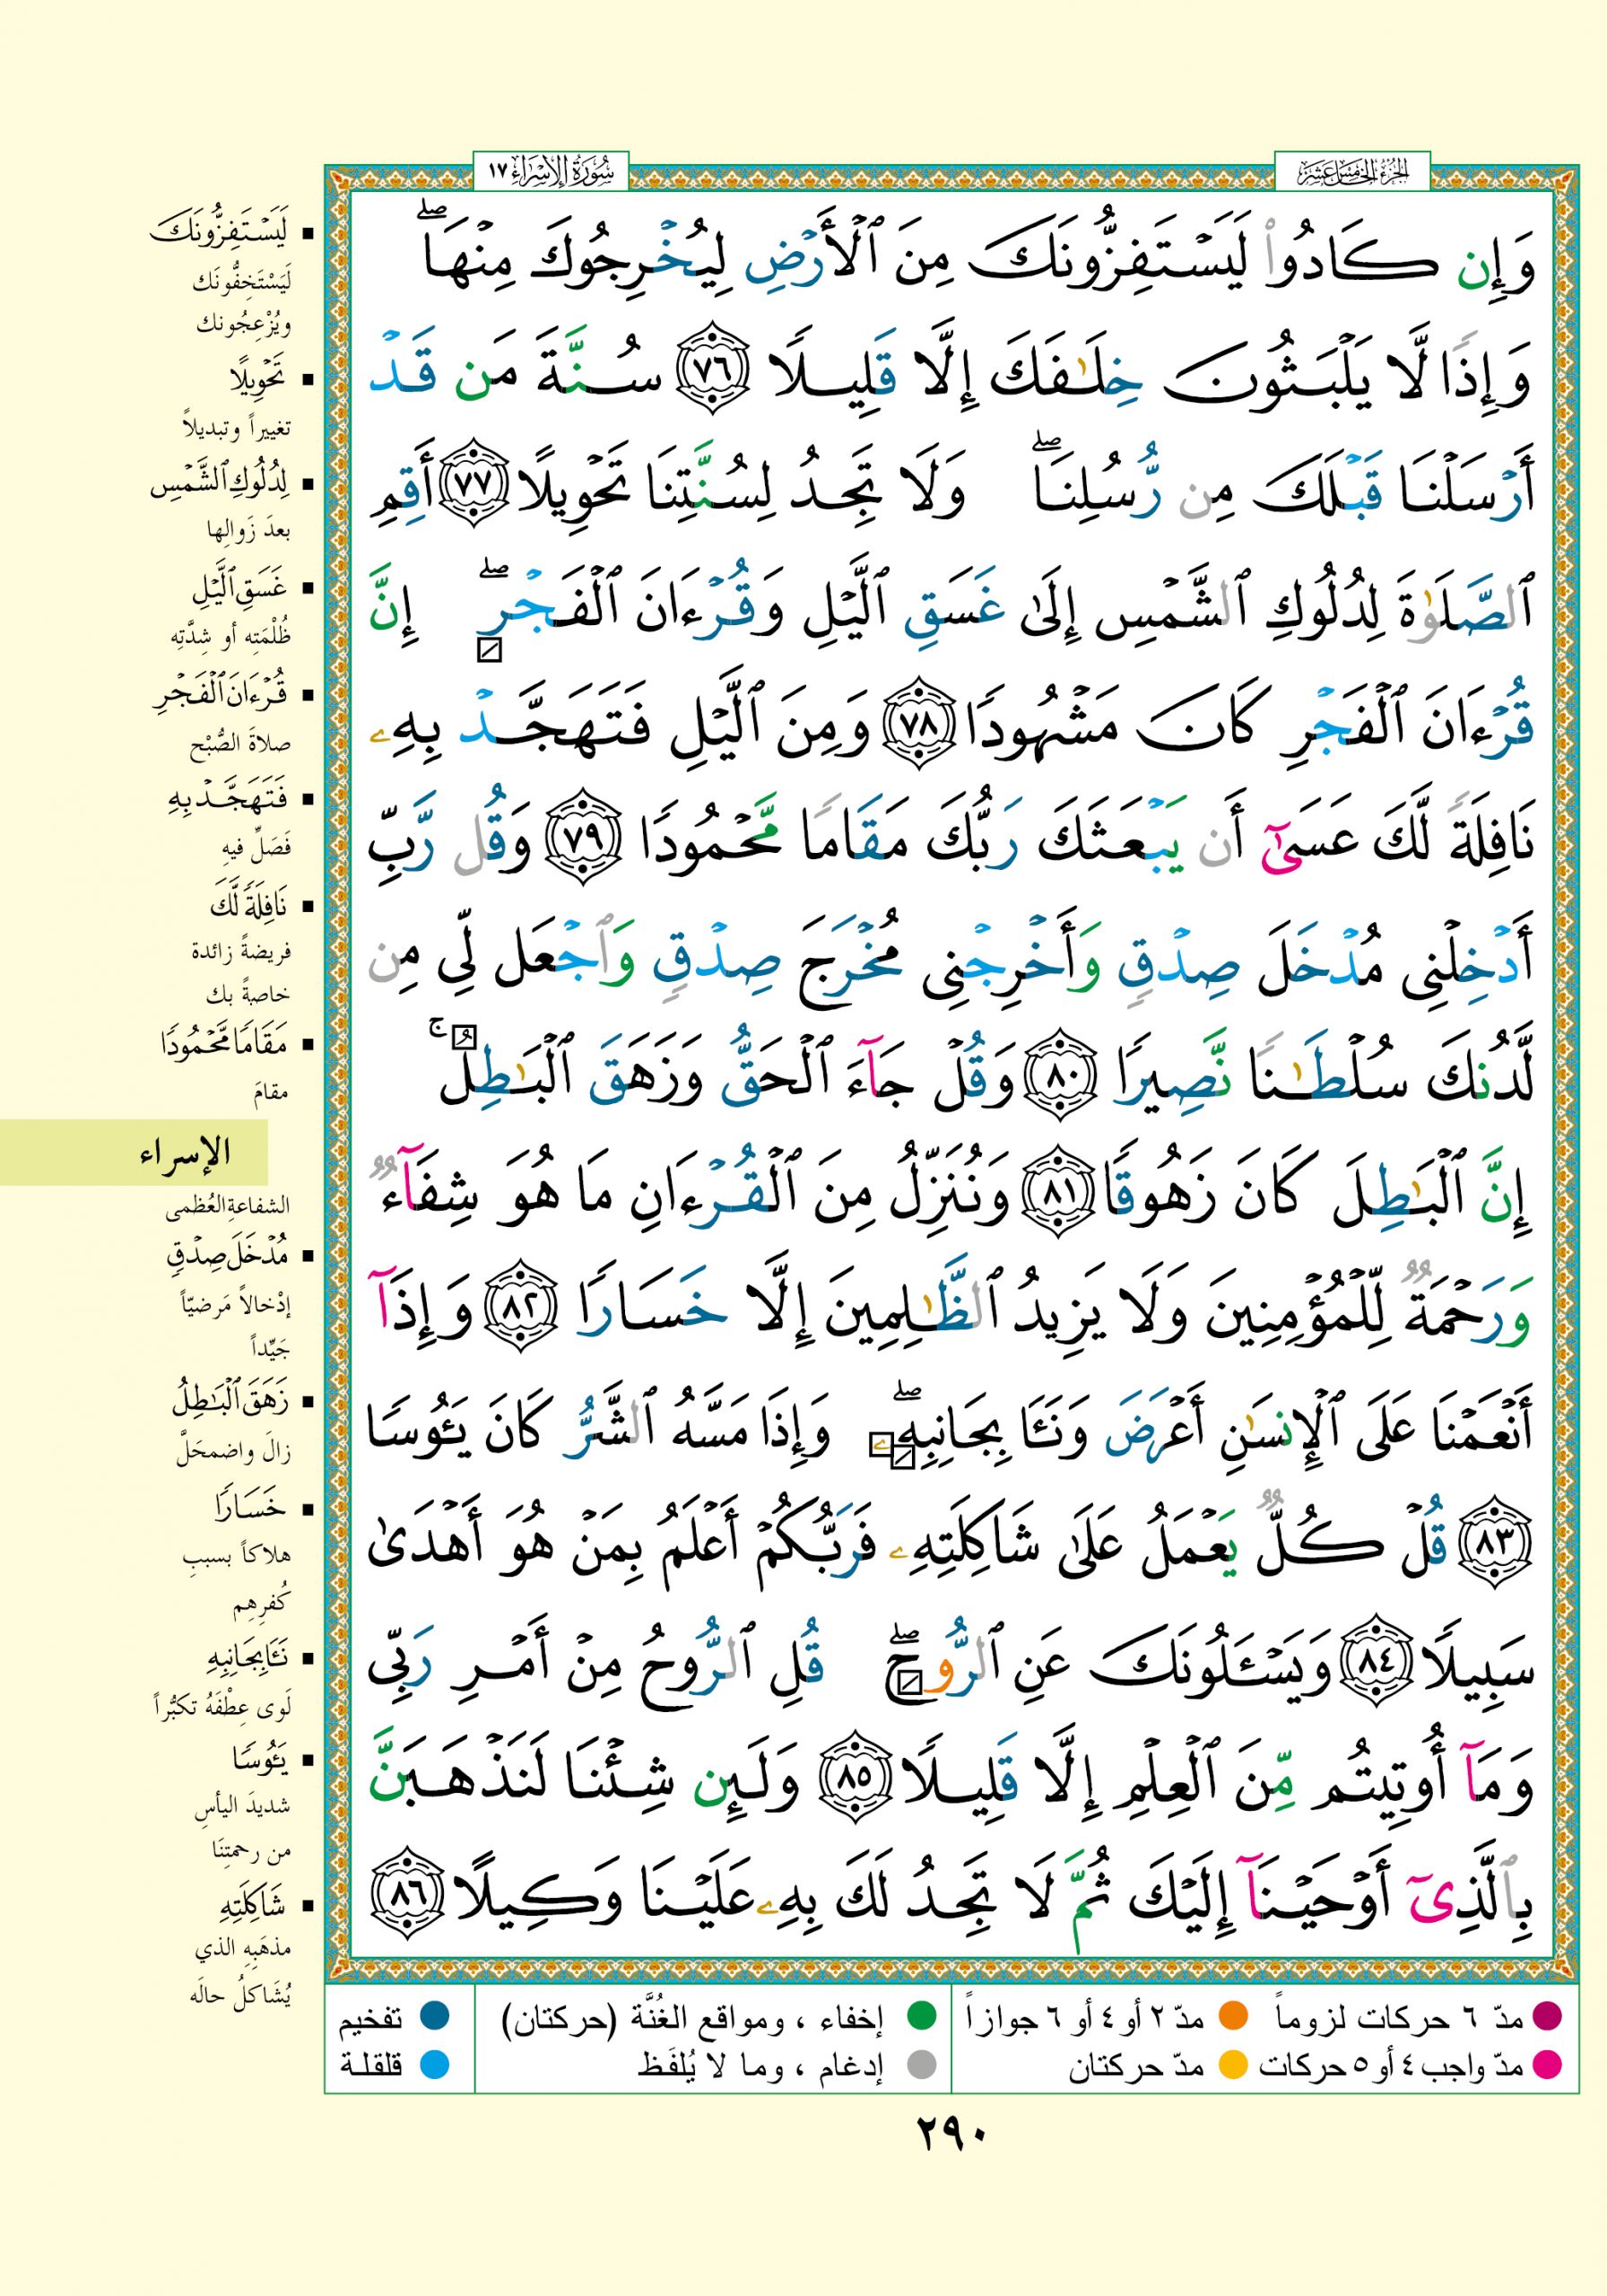 الجزء الخامس عشر
سورة الإسراء ١٧
وَإِن كَادُوا۟ لَيَسْتَفِزُّونَكَ مِنَ ٱلْأَرْضِ لِيُخْرِجُوكَ مِنْهَا ۖ
وَإِذًا لَّا يَلْبَثُونَ خِلَـٰفَكَ إِلَّا قَلِيلًا ٧٦ سُنَّةَ مَن قَدْ
أَرْسَلْنَا قَبْلَكَ مِن رُّسُلِنَا ۖ وَلَا تَجِدُ لِسُنَّتِنَا تَحْوِيلًا ٧٧ أَقِمِ
ٱلصَّلَوٰةَ لِدُلُوكِ ٱلشَّمْسِ إِلَىٰ غَسَقِ ٱلَّيْلِ وَقُرْءَانَ ٱلْفَجْرِ ۖ إِنَّ
قُرْءَانَ ٱلْفَجْرِ كَانَ مَشْهُودًا ٧٨ وَمِنَ ٱلَّيْلِ فَتَهَجَّدْ بِهِۦ
نَافِلَةً لَّكَ عَسَىٰٓ أَن يَبْعَثَكَ رَبُّكَ مَقَامًا مَّحْمُودًا ٧٩ وَقُل رَّبِّ
أَدْخِلْنِى مُدْخَلَ صِدْقٍ وَأَخْرِجْنِى مُخْرَجَ صِدْقٍ وَٱجْعَل لِّى مِن
لَّدُنكَ سُلْطَـٰنًا نَّصِيرًا ٨٠ وَقُلْ جَآءَ ٱلْحَقُّ وَزَهَقَ ٱلْبَـٰطِلُ ۚ
إِنَّ ٱلْبَـٰطِلَ كَانَ زَهُوقًا ٨١ وَنُنَزِّلُ مِنَ ٱلْقُرْءَانِ مَا هُوَ شِفَآءٌ
وَرَحْمَةٌ لِّلْمُؤْمِنِينَ وَلَا يَزِيدُ ٱلظَّـٰلِمِينَ إِلَّا خَسَارًا ٨٢ وَإِذَآ
أَنْعَمْنَا عَلَى ٱلْإِنسَـٰنِ أَعْرَضَ وَنَـَٔا بِجَانِبِهِۦ ۖ وَإِذَا مَسَّهُ ٱلشَّرُّ كَانَ يَـُٔوسًا
٨٣ قُلْ كُلٌّ يَعْمَلُ عَلَىٰ شَاكِلَتِهِۦ فَرَبُّكُمْ أَعْلَمُ بِمَنْ هُوَ أَهْدَىٰ
سَبِيلًا ٨٤ وَيَسْـَٔلُونَكَ عَنِ ٱلرُّوحِ ۖ قُلِ ٱلرُّوحُ مِنْ أَمْرِ رَبِّى
وَمَآ أُوتِيتُم مِّنَ ٱلْعِلْمِ إِلَّا قَلِيلًا ٨٥ وَلَئِن شِئْنَا لَنَذْهَبَنَّ
بِٱلَّذِىٓ أَوْحَيْنَآ إِلَيْكَ ثُمَّ لَا تَجِدُ لَكَ بِهِۦ عَلَيْنَا وَكِيلًا ٨٦
لَيَسْتَفِزُّونَكَ
لَيَسْتَخِفُّونَك
ويُزْعِجُونك
تَحْوِيلًا
تغييراً وتبديلاً
لِدُلُوكِ ٱلشَّمْسِ
بعدَ زَوالِها
غَسَقِ ٱلَّيْلِ
ظُلْمَتِه أو شِدَّتِه
قُرْءَانَ ٱلْفَجْرِ
صلاةَ الصُّبْح
فَتَهَجَّدْ بِهِ
فَصَلِّ فيهِ
نَافِلَةً لَّكَ
فريضةً زائدة
خاصةً بك
مَقَامًا مَّحْمُودًا
مقامَ
الإسراء
الشفاعةِ العُظمى
مُدْخَلَ صِدْقٍ
إدْخالاً مَرضيّاً
جَيِّداً
زَهَقَ ٱلْبَـٰطِلُ
زالَ واضمحَلَّ
خَسَارًا
هلاكاً بسببِ
كُفرِهِم
نَـَٔا بِجَانِبِهِ
لَوى عِطْفَهُ تكبُّراً
يَـُٔوسًا
شديدَ اليأسِ
من رحمتِنَا
شَاكِلَتِهِ
مذهَبِهِ الذي
يُشَاكلُ حالَه
مدّ ٦ حركات لزوماً مدّ ٢ أو ٤ أو ٦ جوازاً إخفاء ، ومواقع الغُنَّة (حركتان) تفخيم
مدّ واجب ٤ أو ٥ حركات مدّ حركتان إدغام ، وما لا يُلفَظ قلقلة
٢٩٠